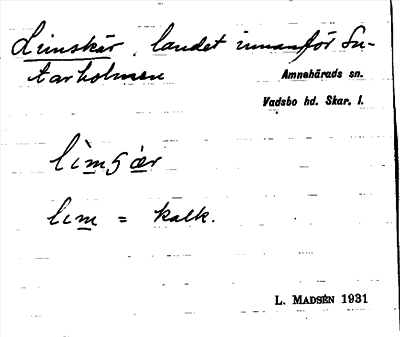 Limskär, landet innanför Su-
tarholmen
Amnehärads sn.
Vadsbo hd. Skar. l.
lim = kalk.
L. MADSÉN 1931